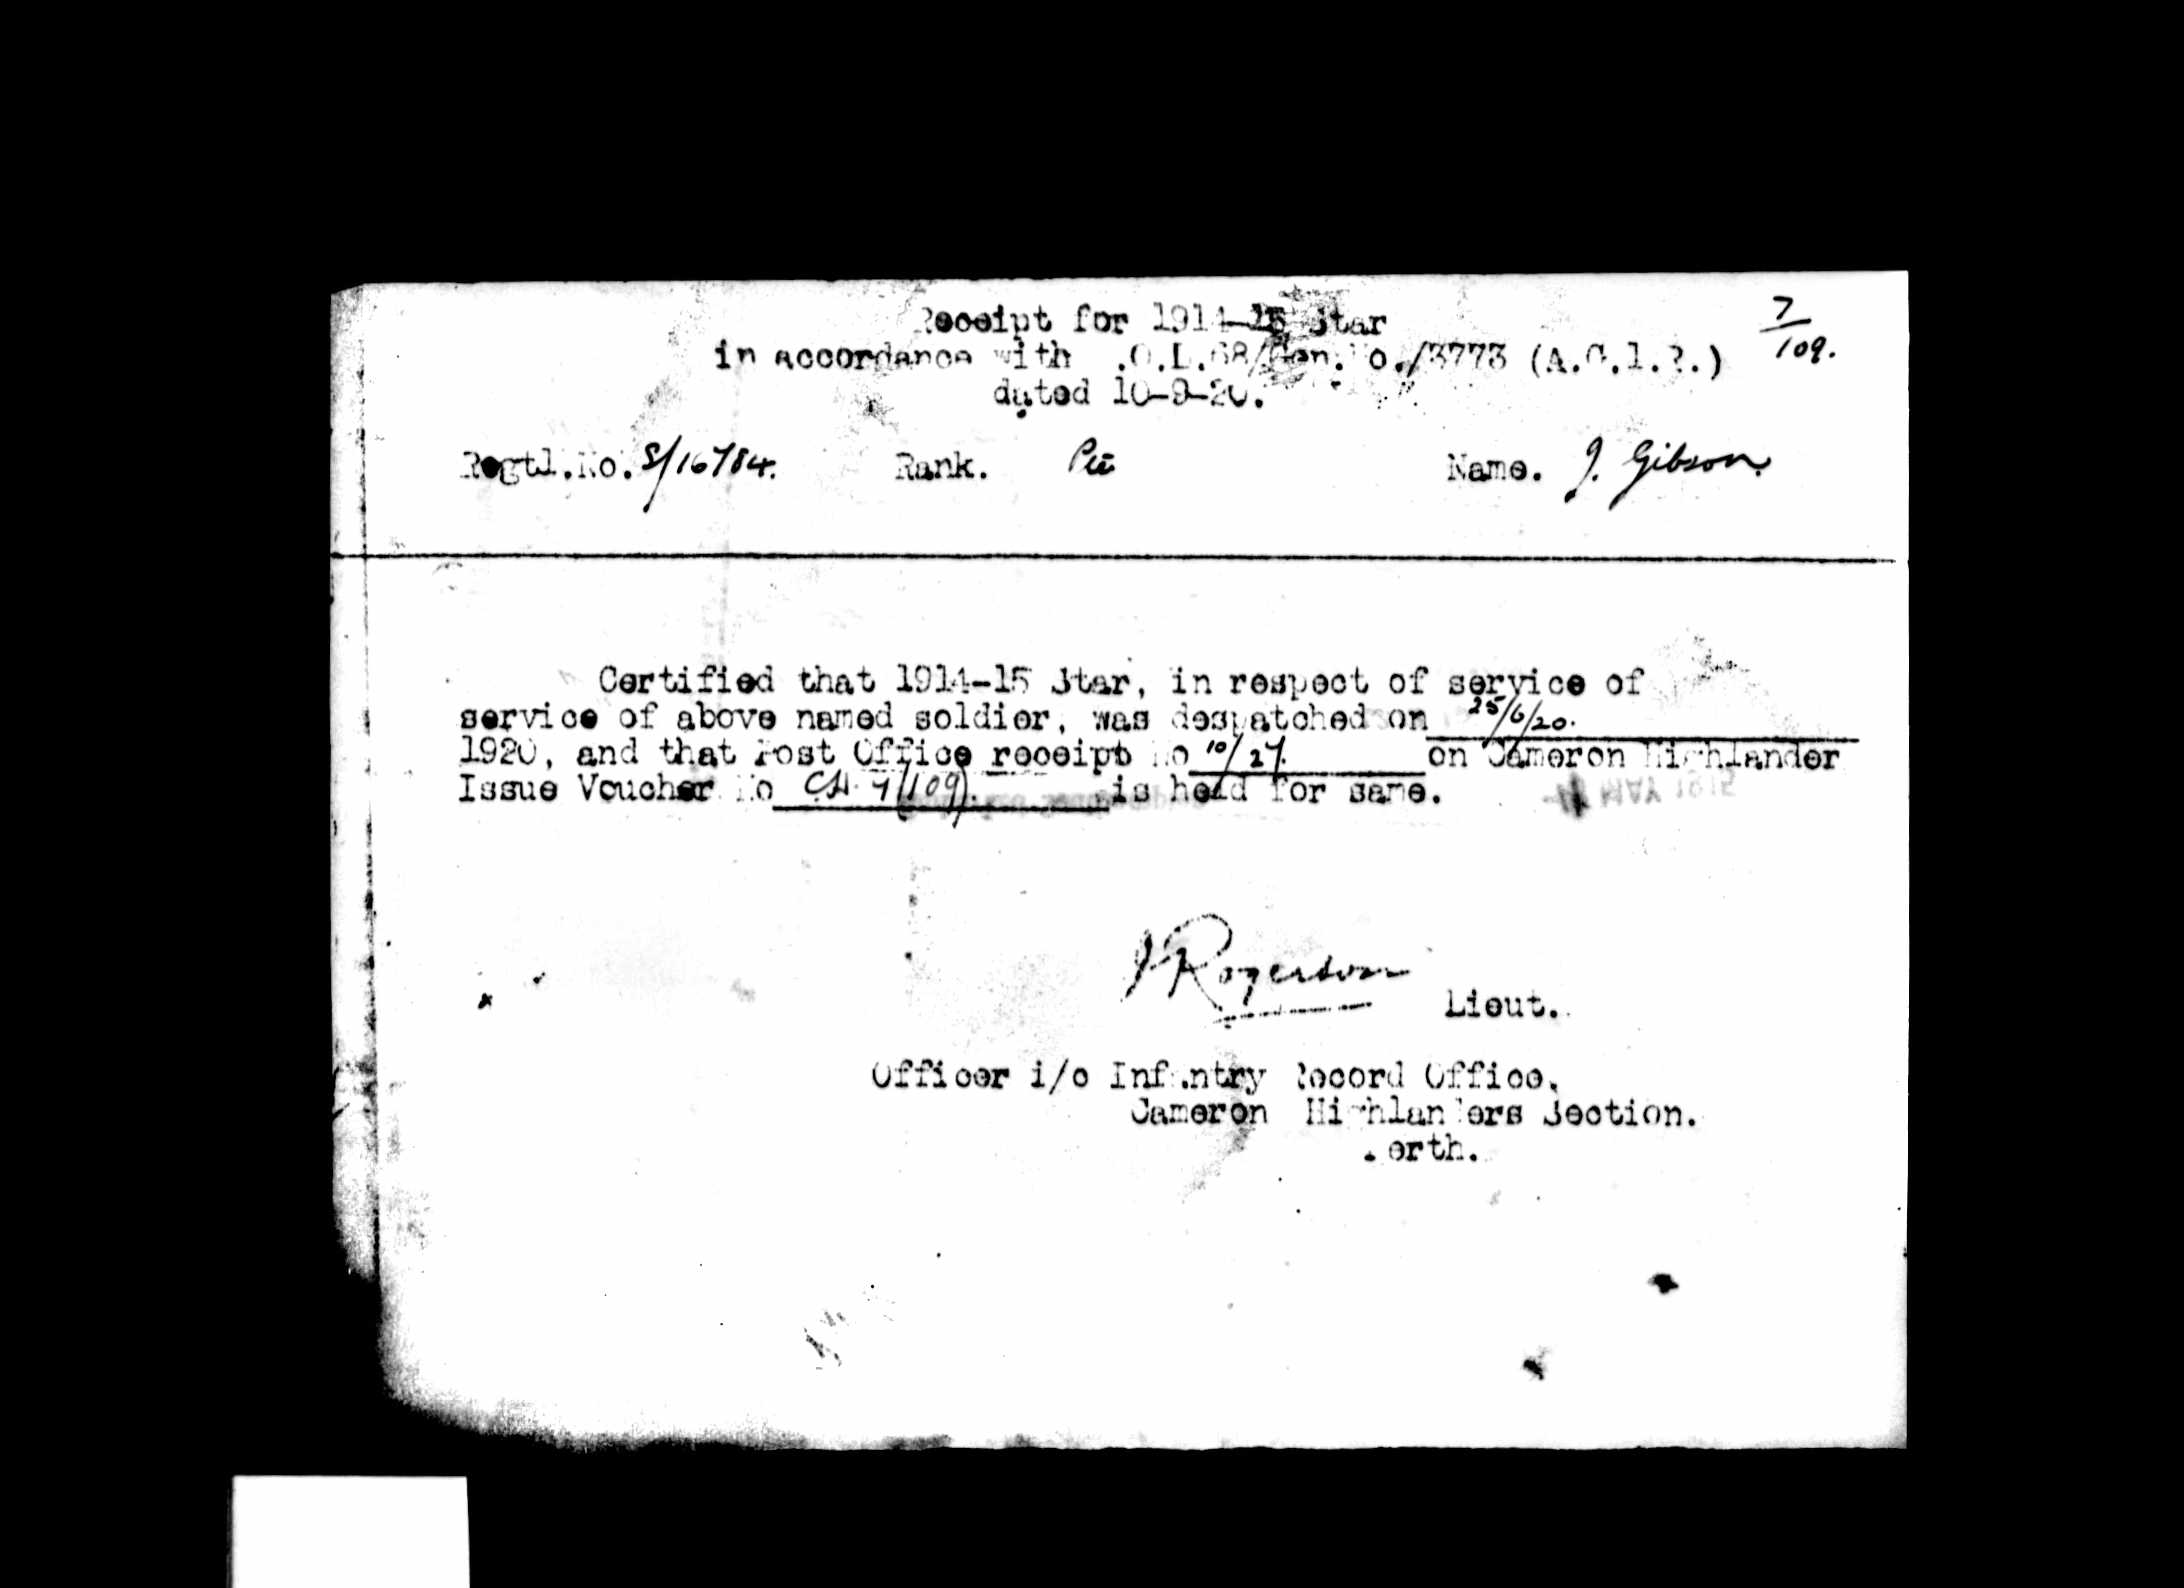 Receipt for 1914-15 Star
7/109.
in accordance with .O.L.68/Gen.No./3773 (A.G.1.R.)
dated 10-9-20.
Regtl.No. S/16784. Rank. Pte Name. J. Gibson.
Certified that 1914-15 Star, in respect of service of
service of above named soldier, was despatched on 25/6/20.
1920, and that Post Office receipt No 10/27. on Cameron Highlander
Issue Voucher No CH 7(109). is held for same.
J Rogerson Lieut.
Officer i/c Infantry Record Office,
Cameron Highlanders Section.
Perth.